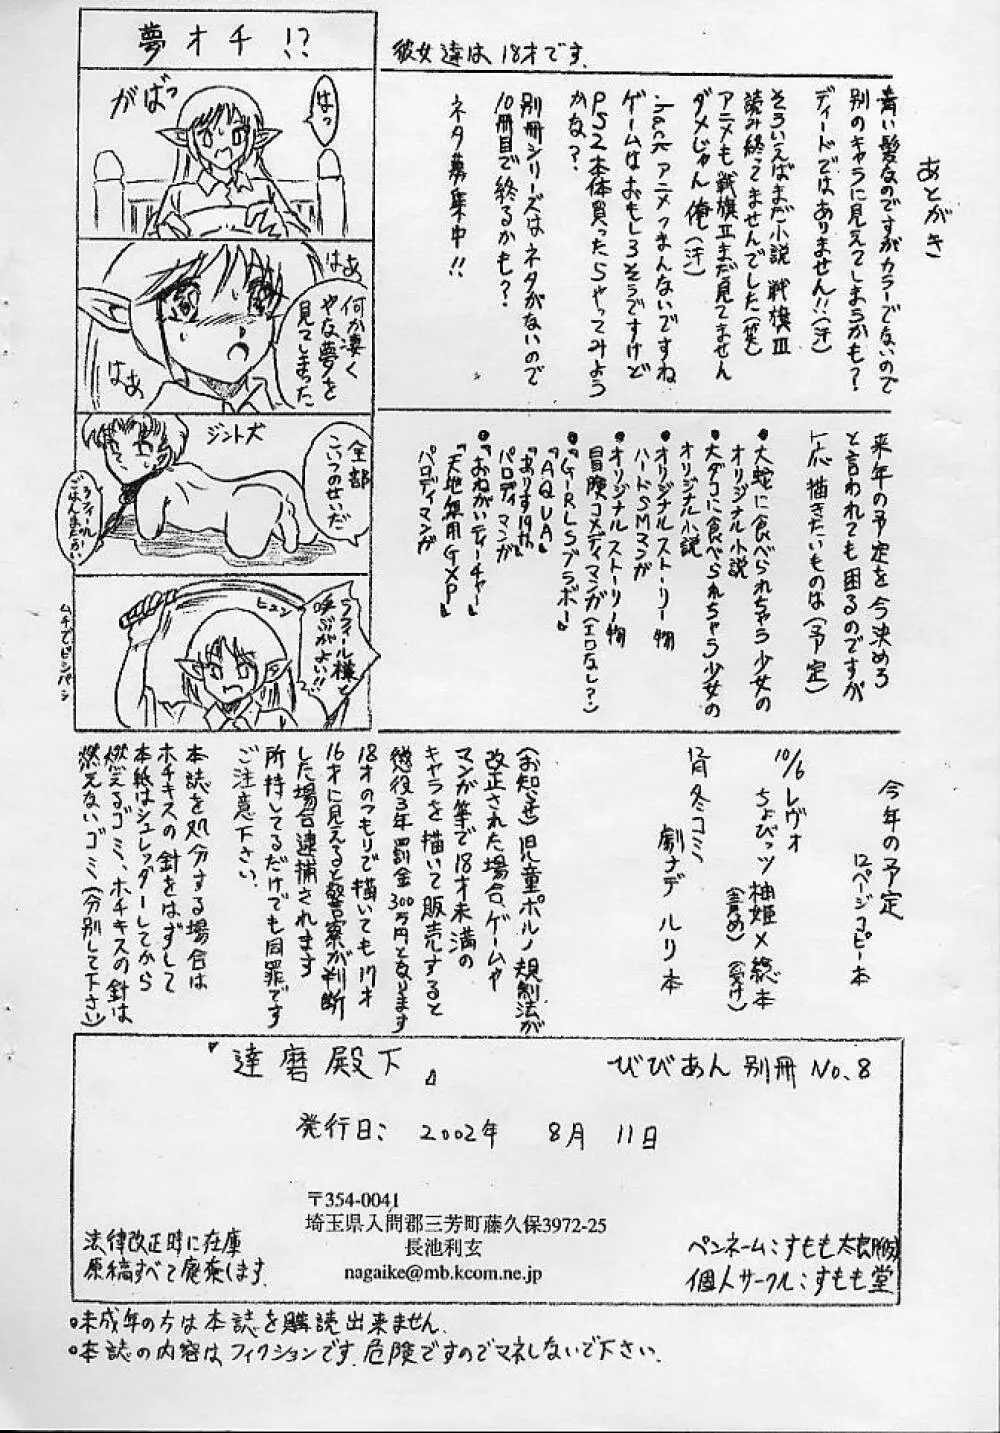 夢オチ!?
はっ
がばっ
はぁ
何か凄く
やな夢を
見てしまった
はぁ
ジント犬
全部
こいつのせいだ
ラフィール
ごはんまだかい
ヒュン
ラフィール様と
呼ぶがよい!!
ムチでビシバシ
彼女達は、18才です.
あとがき
青い髪なのですがカラーでないので
別のキャラに見えてしまうかも?
ディードではありません!!(汗)
そういえばまだ小説 戦旗III
読み終ってませんでした(笑)
アニメも戦旗IIまだ見てません
ダメじゃん俺(汗)
.hack アニメつまんないですね
ゲームはおもしろそうですけど
PS2本体買ったらやってみよう
かな?
別冊シリーズはネタがないので
10冊目で終るかも?
ネタ募集中!!
来年の予定を今決めろ
と言われても困るのですが
一応描きたいものは(予定)
•大蛇に食べられちゃう少女の
オリジナル小説
•大ダコに食べられちゃう少女の
オリジナル小説
•オリジナルストーリー物
ハードSMマンガ
•オリジナルストーリー物
冒険コメディマンガ(エロなし?)
•『GIRLSブラボー』
『AQUA』
『ありす19th』
パロディマンガ
•『おねがいティーチャー』
『天地無用GXP』
パロディマンガ
今年の予定
12ページコピー本
10/6 レヴォ
ちょびっツ 柚姫×総本
(責め) (受け)
12月 冬コミ
劇ナデ ルリ本
(お知らせ)児童ポルノ規制法が
改正された場合、ゲームや
マンガ等で18才未満の
キャラを描いて販売すると
懲役3年罰金300万円となります
18才のつもりで描いても17才
16才に見えると警察が判断
した場合逮捕されます
所持してるだけでも同罪です
ご注意下さい.
本誌を処分する場合は
ホチキスの針をはずして
本紙はシュレッダーしてから
燃えるゴミ、ホチキスの針は
燃えないゴミ(分別して下さい)
『達磨殿下』
びびあん 別冊 No.8
発行日: 2002年 8月 11日
〒354-0041
埼玉県入間郡三芳町藤久保3972-25
長池利玄
nagaike@mb.kcom.ne.jp
法律改正時に在庫
原稿すべて廃棄します.
ペンネーム:すもも太郎(仮)
個人サークル:すもも堂
•未成年の方は本誌を購読出来ません.
•本誌の内容は、フィクションです.危険ですのでマネしないで下さい.